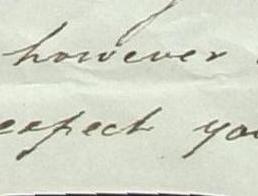 however
expect you